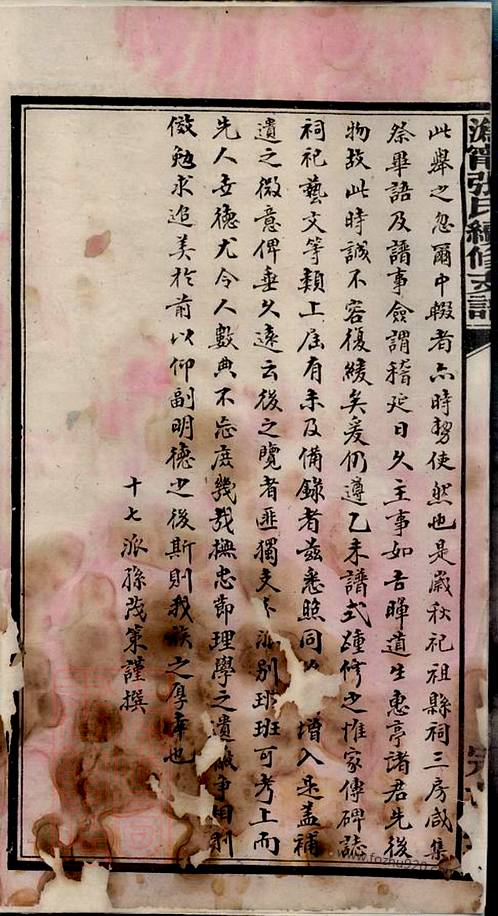 此舉之忽爾中輟者亦時勢使然也是歲秋祀祖縣祠三房咸集
祭畢語及譜事僉謂稽延日久主事如舌暉道生惠亭諸君先後
物故此時誠不容復緩矣爰仍遵乙未譜式踵修之惟家傳碑誌
祠祀藝文等類上屆有未及備錄者茲悉照同 增入是蓋補
遺之微意俾垂久遠云後之覽者匪獨支 派別班班可考上而
先人世德尤令人數典不忘庶幾我橅忠節理學之遺 爭 則
傚勉求追美於前以仰副明德之後斯則我族之厚幸也
十七派孫茂策謹撰
甯張氏續修支譜
www.fozhu920.com